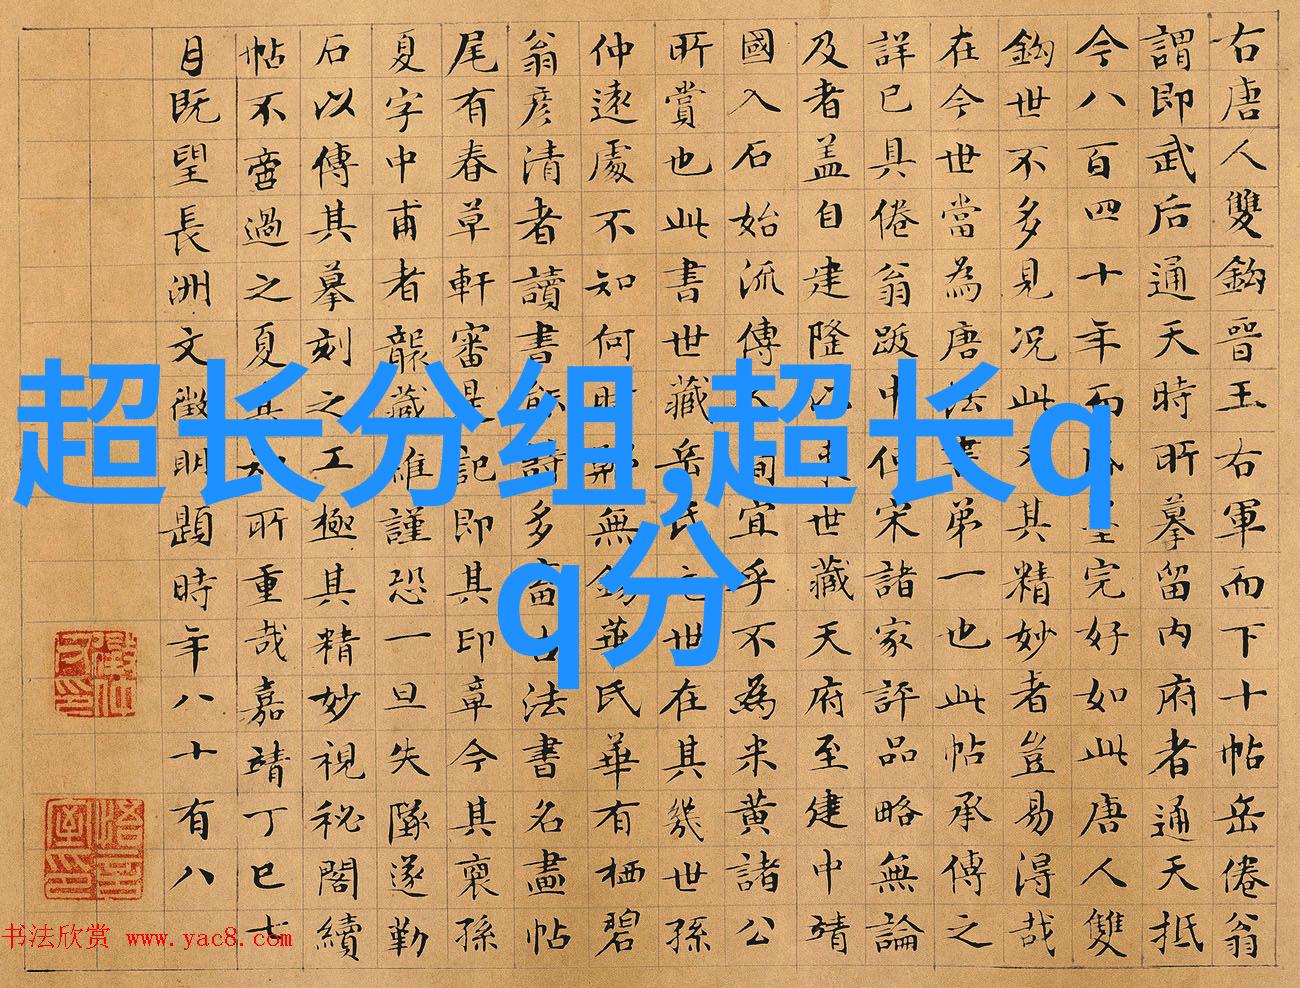 右唐人雙鈎晉王右軍而下十帖岳倦翁
謂即武后通天時所摹留內府者通天抵
今八百四十年而墨完好如此唐人雙
鈎世不多見况此又其精妙者豈易得哉
在今世當為唐法書第一也此帖承傳之
詳已具倦翁跋中但宋諸家評品略無論
及者盖自建隆以来世藏天府至建中靖
國入石始流傳人間宜乎不為米黃諸公
所賞也此書世藏岳氏元世在其幾世孫
仲遠處不知何時歸無錫華氏華有栖碧
翁彥清者讀書能詩多畜古法書名畫帖
尾有春草軒審定記即其印章今其裔孫
夏字中甫者襲藏維謹恐一旦失墜遂勒
石以傳其摹刻之工極其精妙視秘閣續
帖不啻過之夏其知所重哉嘉靖丁巳七
月既望長洲文徵明題時年八十有八
超长分组,超长q
q分
书法欣赏 www.yac8.com